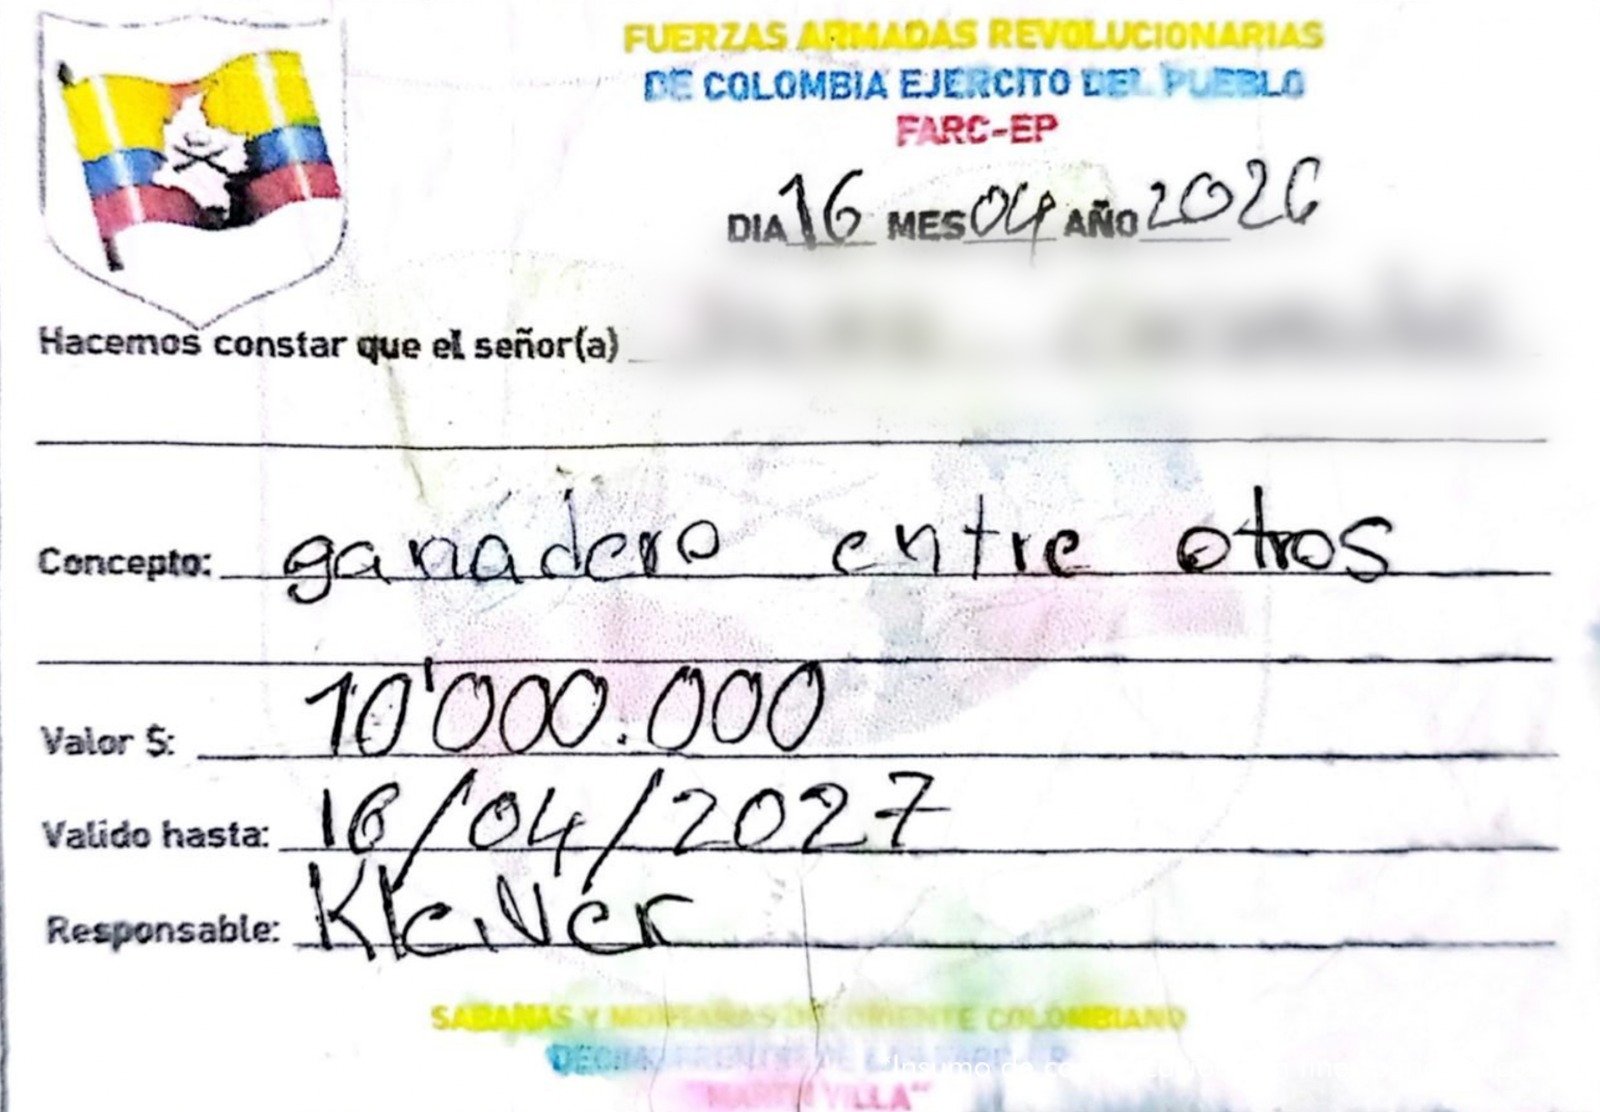 FUERZAS ARMADAS REVOLUCIONARIAS
DE COLOMBIA EJERCITO DEL PUEBLO
FARC-EP
DIA 16 MES 04 AÑO 2026
Hacemos constar que el señor(a)
Concepto: ganadero entre otros
Valor $: 10'000.000
Valido hasta: 16/04/2027
Responsable: Kleiver
SABANAS Y MONTAÑAS DEL ORIENTE COLOMBIANO
DECIMO FRENTE
VILLA"
"Insumo de